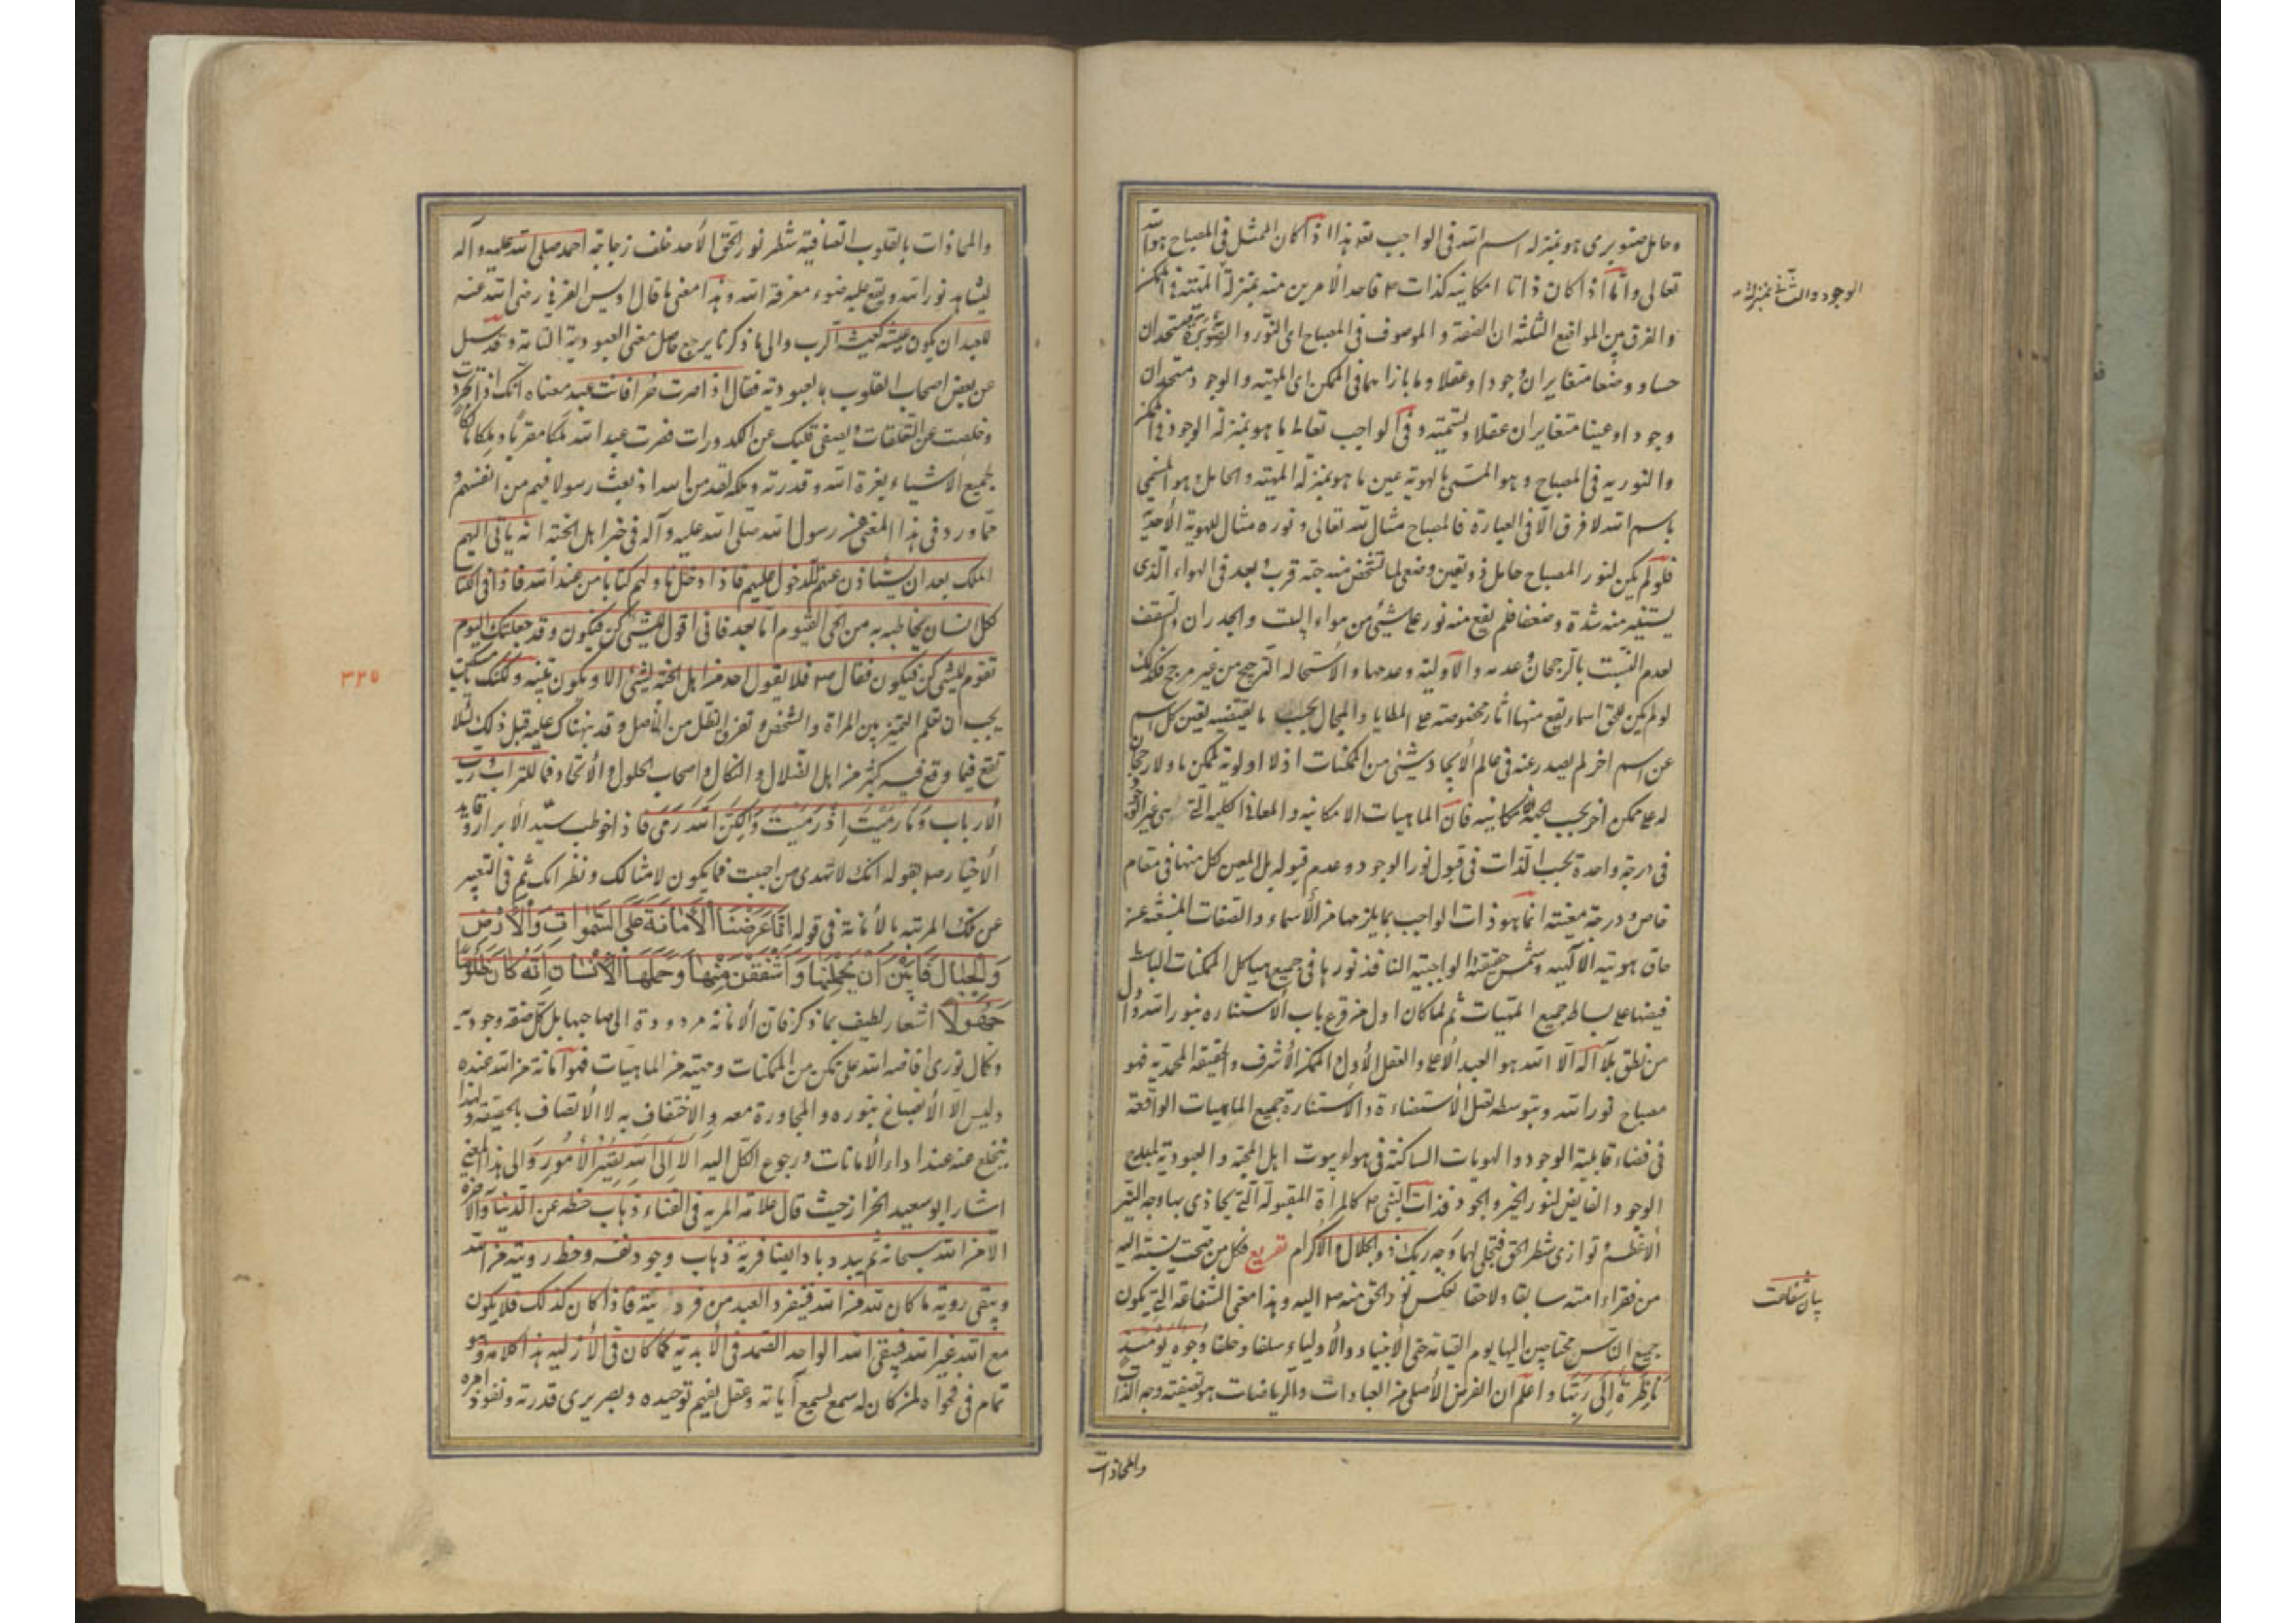 وحامل صنوبرى هو بمنزله اسم الله فى الواجب تع هذا اذا كان الممثل فى المصباح هو الله
تعالى واما اذا كان ذاتا امكانيه كذات ص فاحد الأمرين منه بمنزلة المهيته فى الممكن
الوجود والثانى بمنزلة
والفرق بين المواضع الثلثه ان الصفة والموصوف فى المصباح اى النور والصنوبرة متحدان
حسا ووضعا متغايران وجودا وعقلا وما بازائهما فى الممكن اى المهيته والوجود متحدان
وجودا وعينا متغايران عقلا وتسميته وفى الواجب تعالى ما هو بمنزلة الوجود فى الممكن
والنوريه فى المصباح وهو المسمى بالهوية عين ما هو بمنزلة المهيته والحامل وهو المسمى
باسم الله لا فرق الا فى العبارة فالمصباح مثال لله تعالى ونوره مثال للهوية الأحدية
فلو لم يكن لنور المصباح حامل ذو تعين وضعى لما تشخص منه جهة قرب وبعد فى الهواء الذى
يستنير منه شدة وضعفا فلم يقع منه نور على شىء من هواء البيت والجدران والسقف
لعدم النسبت بالرجحان وعدمه والأولية وعدمها والأستحاله الترجيح من غير مرجح فكذلك
لو لم يكن للحق اسماء يقع منها اثار مخصوصته على المطايا والمجال بحسب ما يقتضيه تعين كل اسم
عن اسم اخر لم يصدر عنه فى عالم الأيجاد شىء من الممكنات اذ لا اولوية لممكن ما ولا رجحان
له على ممكن اخر بحسب الجهة الامكانيه فان الماهيات الامكانيه والمعانى الكليه التى هى غير الوجود
فى درجة واحدة بحسب الذات فى قبول نور الوجود وعدم قبوله بل المعين كل منها فى مقام
خاص ودرجة معينته انما هو ذات الواجب بما يلزمها من الأسماء والصفات المنبعثه عن
حاق هويته الالهيه وشمس حقيقته الواجبيه النافذ نورها فى جميع هياكل الممكنات الباسط
فيضها على بساط جميع المهيات ثم لما كان اول من قرع باب الأستناره بنور الله واول
من نطق بلا اله الا الله هو العبد الأعلى والعقل الأول الممكن الأشرف والحقيقة المحمديه فهو
مصباح نور الله وبتوسطه تقبل الأستضاءة والأستنارة جميع الماهيات الواقعة
فى فضاء قابلية الوجود والهويات الساكنة فى هواء بيوت اهل المحبة والعبودية لمبدع
الوجود الفايض لنور الخير والجود فذات النبى ص كالمراة المقبولة التى يحاذى بها وجه النير
الأعظم وتوازى شطر الحق فتجلى لها وجه ربك ذو الجلال والأكرام تفريع فكل من صحت نسبته اليه
من فقراء امته سابقا ولاحقا نعكس نور الحق منه ص اليه وهذا معنى الشفاعة التى يكون
بيان شفاعت
جميع الناس محتاجين اليها يوم القيامة حتى الأنبياء والأولياء سلفا وخلفا وجوه يومئذ
ناظرة الى ربها واعلم ان الغرض الأصلى من العبادات والرياضات هو تصفيته وجه الذات
والمحاذات
والمحاذات بالقلوب الصافية شطر نور الحق الأحد خلف زجاجة احمد صلى الله عليه وآله
ليشاهد نور الله ويقع عليه ضوء معرفة الله وهذا معنى ما قال اويس القرنى رضى الله عنه
للعبد ان يكون عيشه كعيش الرب والى ما ذكرنا يرجع حاصل معنى العبودية التامة وقد سئل
عن بعض اصحاب القلوب ما العبودية فقال اذا صرت حرا فانت عبد معناه انك اذا تجردت
وخلصت عن التعلقات ويصفى قلبك عن الكدورات فصرت عبدا لله ملكا مقربا وملكا مالكا
لجميع الأشياء بعزة الله وقدرته وحكمه لقد من الله اذ بعث رسولا فيهم من انفسهم و
مما ورد فى هذا المعنى عن رسول الله صلى الله عليه وآله فى خبر اهل الجنة انه يأتى اليهم
الملك بعد ان يستأذن عنهم للدخول عليهم فاذا دخل ناولهم كتابا من عند الله فاذا فى الكتاب
لكل انسان يخاطبه به من الحى القيوم اما بعد فانى اقول للشىء كن فيكون وقد جعلتك اليوم
تقوم للشىء كن فيكون فقال ص فلا يقول احد من اهل الجنة لشىء الا ويكون تنبيه ولكنك يا مسكين
٣٢٥
يجب ان تعلم التميز بين المراة والشخص وتعرف الظل من الأصل وقد نبهناك عليه قبل ذلك لئلا
تقع فيما وقع فيه كثير من اهل الضلال والنكال واصحاب الحلول والأتحاد فما للتراب ورب
الأرباب وما رميت اذ رميت ولكن الله رمى فاذا خوطب سيد الأبرار وقايد
الأخيار ص بقوله انك لا تهدى من احببت فما يكون لامثالك ونظرائك ثم فى التعبير
عن تلك المرتبه بالأمانة فى قوله انا عرضنا الأمانة على السموات والأرض
والجبال فابين ان يحملنها واشفقن منها وحملها الأنسان انه كان ظلوما
جهولا اشعار لطيف بما ذكر فان الأمانة مردودة الى صاحبها بل كل صفة وجودية
وكمال نورى افاضه الله على ممكن من الممكنات ومهيته من الماهيات فهو امانة من الله عنده
وليس الا الأنصباغ بنوره والمجاورة معه والاختفاف به لا الأتصاف بالحقيقة ولهذا
ينخلع عنه عند اداء الأمانات ورجوع الكل اليه الا الى الله تصير الأمور والى هذا المعنى
اشار ابو سعيد الخراز حيث قال علامة المريد فى الفناء ذهاب حظه عن الدنيا والآخرة
الا من الله سبحانه ثم يبدو باد ايضا فريه ذهاب وجود نفسه وحظ رويته من الله
ويبقى رويه ما كان لله من الله فيتفرد العبد من فردانيته فاذا كان كذلك فلا يكون
مع الله غير الله فيبقى الله الواحد الصمد فى الأبدية كما كان فى الأزليه هذا كلامه وهو
تمام فى فحواه لمن كان له سمع يسمع آياته وعقل يفهم توحيده وبصر يرى قدرته ونفوذ امره